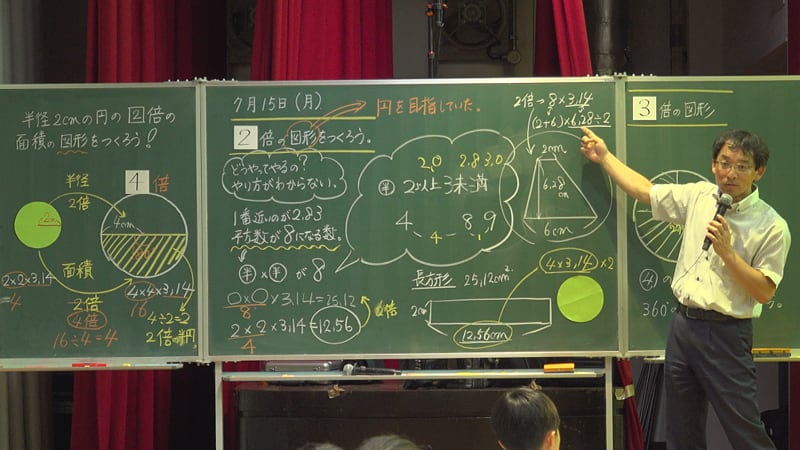 半径2cmの円の2倍の
面積の図形をつくろう!
4倍
半径
2倍
2cm
4cm
2×2×3,14
4
面積
2倍
4倍
16÷4=4
4×4×3,14
16
4÷2=2
2倍の半円
7月15日(月)
円を目指していた。
2倍の図形をつくろう。
どうやってやるの?
やり方がわからない。
1番近いのが2.83
平方数が8になる数。
半×半が8
○×○×3,14=25,12
8
2倍
2×2×3,14=12,56
4
2,0 2.83,0
半 2以上3未満
4 8,9
4 1
長方形 25,12cm²
4×3,14×2
2
12,56cm
2倍→8×3,14
(2+6)×6,28÷2
2cm
6,28cm
6cm
3倍の図形
4の
360°